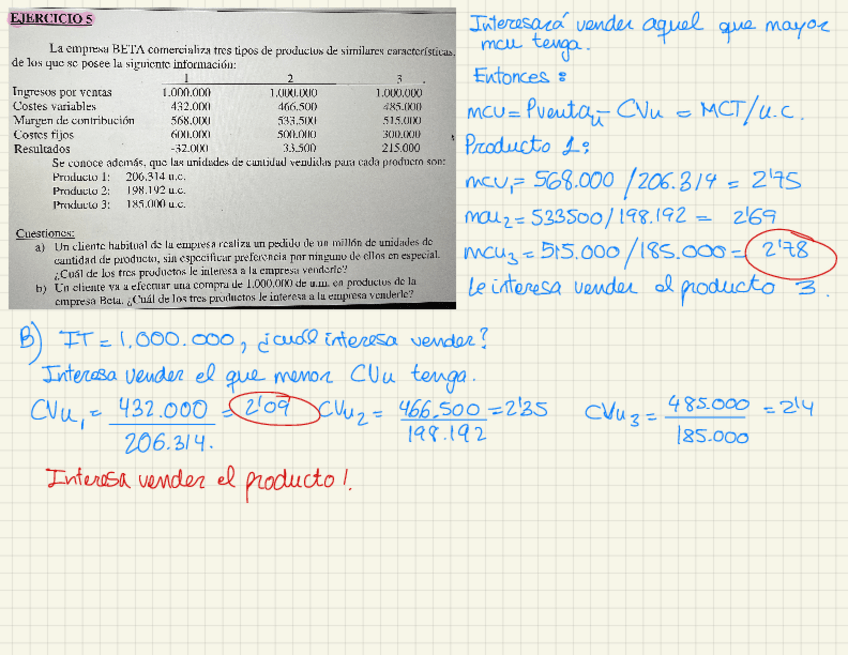 EJERCICIO 5
La empresa BETA comercializa tres tipos de productos de similares características,
de los que se posee la siguiente información:
1 2 3
Ingresos por ventas 1.000.000 1.000.000 1.000.000
Costes variables 432.000 466.500 485.000
Margen de contribución 568.000 533.500 515.000
Costes fijos 600.000 500.000 300.000
Resultados -32.000 33.500 215.000
Se conoce además, que las unidades de cantidad vendidas para cada producto son:
Producto 1: 206.314 u.c.
Producto 2: 198.192 u.c.
Producto 3: 185.000 u.c.
Cuestiones:
a) Un cliente habitual de la empresa realiza un pedido de un millón de unidades de
cantidad de producto, sin especificar preferencia por ninguno de ellos en especial.
¿Cuál de los tres productos le interesa a la empresa venderle?
b) Un cliente va a efectuar una compra de 1.000.000 de u.m. en productos de la
empresa Beta. ¿Cuál de los tres productos le interesa a la empresa venderle?
Interesará vender aquel que mayor
mcu tenga.
Entonces:
mcu = Pventa u - CVu = MCT/u.c.
Producto 1:
mcu1 = 568.000 / 206.314 = 2'75
mcu2 = 533500 / 198.192 = 2'69
mcu3 = 515.000 / 185.000 = 2'78
Le interesa vender el producto 3.
B) IT = 1.000.000, ¿cuál interesa vender?
Interesa vender el que menor CVu tenga.
CVu1 = 432.000 / 206.314. = 2'09 CVu2 = 466.500 / 198.192 = 2'35 CVu3 = 485.000 / 185.000 = 2'4
Interesa vender el producto 1.